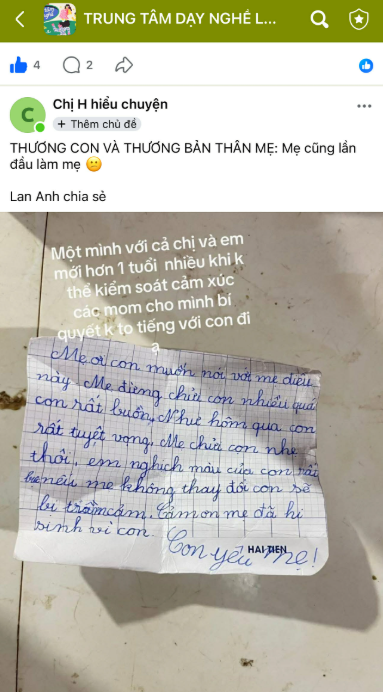 TRUNG TÂM DẠY NGHỀ L...
4
2
C
Chị H hiểu chuyện
+ Thêm chủ đề
THƯƠNG CON VÀ THƯƠNG BẢN THÂN MẸ: Mẹ cũng lần
đầu làm mẹ 😕
Lan Anh chia sẻ
Một mình với cả chị và em
mới hơn 1 tuổi nhiều khi k
thể kiểm soát cảm xúc
các mom cho mình bí
quyết k to tiếng với con đi
ạ
Mẹ ơi con muốn nói với mẹ điều
này. Mẹ đừng chửi con nhiều quá
con rất buồn. Như hôm qua con
rất tuyệt vọng, Mẹ chửi con nhẹ
thôi, em nghịch màu của con rồi
nếu mẹ không thay đổi con sẽ
bị trầm cảm. Cảm ơn mẹ đã hi
sinh vì con.
Con yêu mẹ!
HAI TIEN